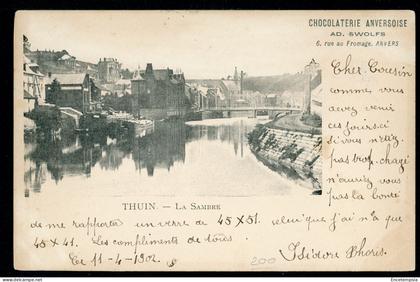 CHOCOLATERIE ANVERSOISE
AD. SWOLFS
6, rue au Fromage, ANVERS
Cher Cousin
comme vous
devez venir
ces jours ci
si vous n'etez
pas trop chargé
n'auriez vous
pas la bonté
THUIN. — LA SAMBRE
de me rapporter un verre de 45 X 51. celui que j'ai n'a que
45 X 41. Les compliments de tous.
Ce 11-4-1902.
Isidore Phoris.
200